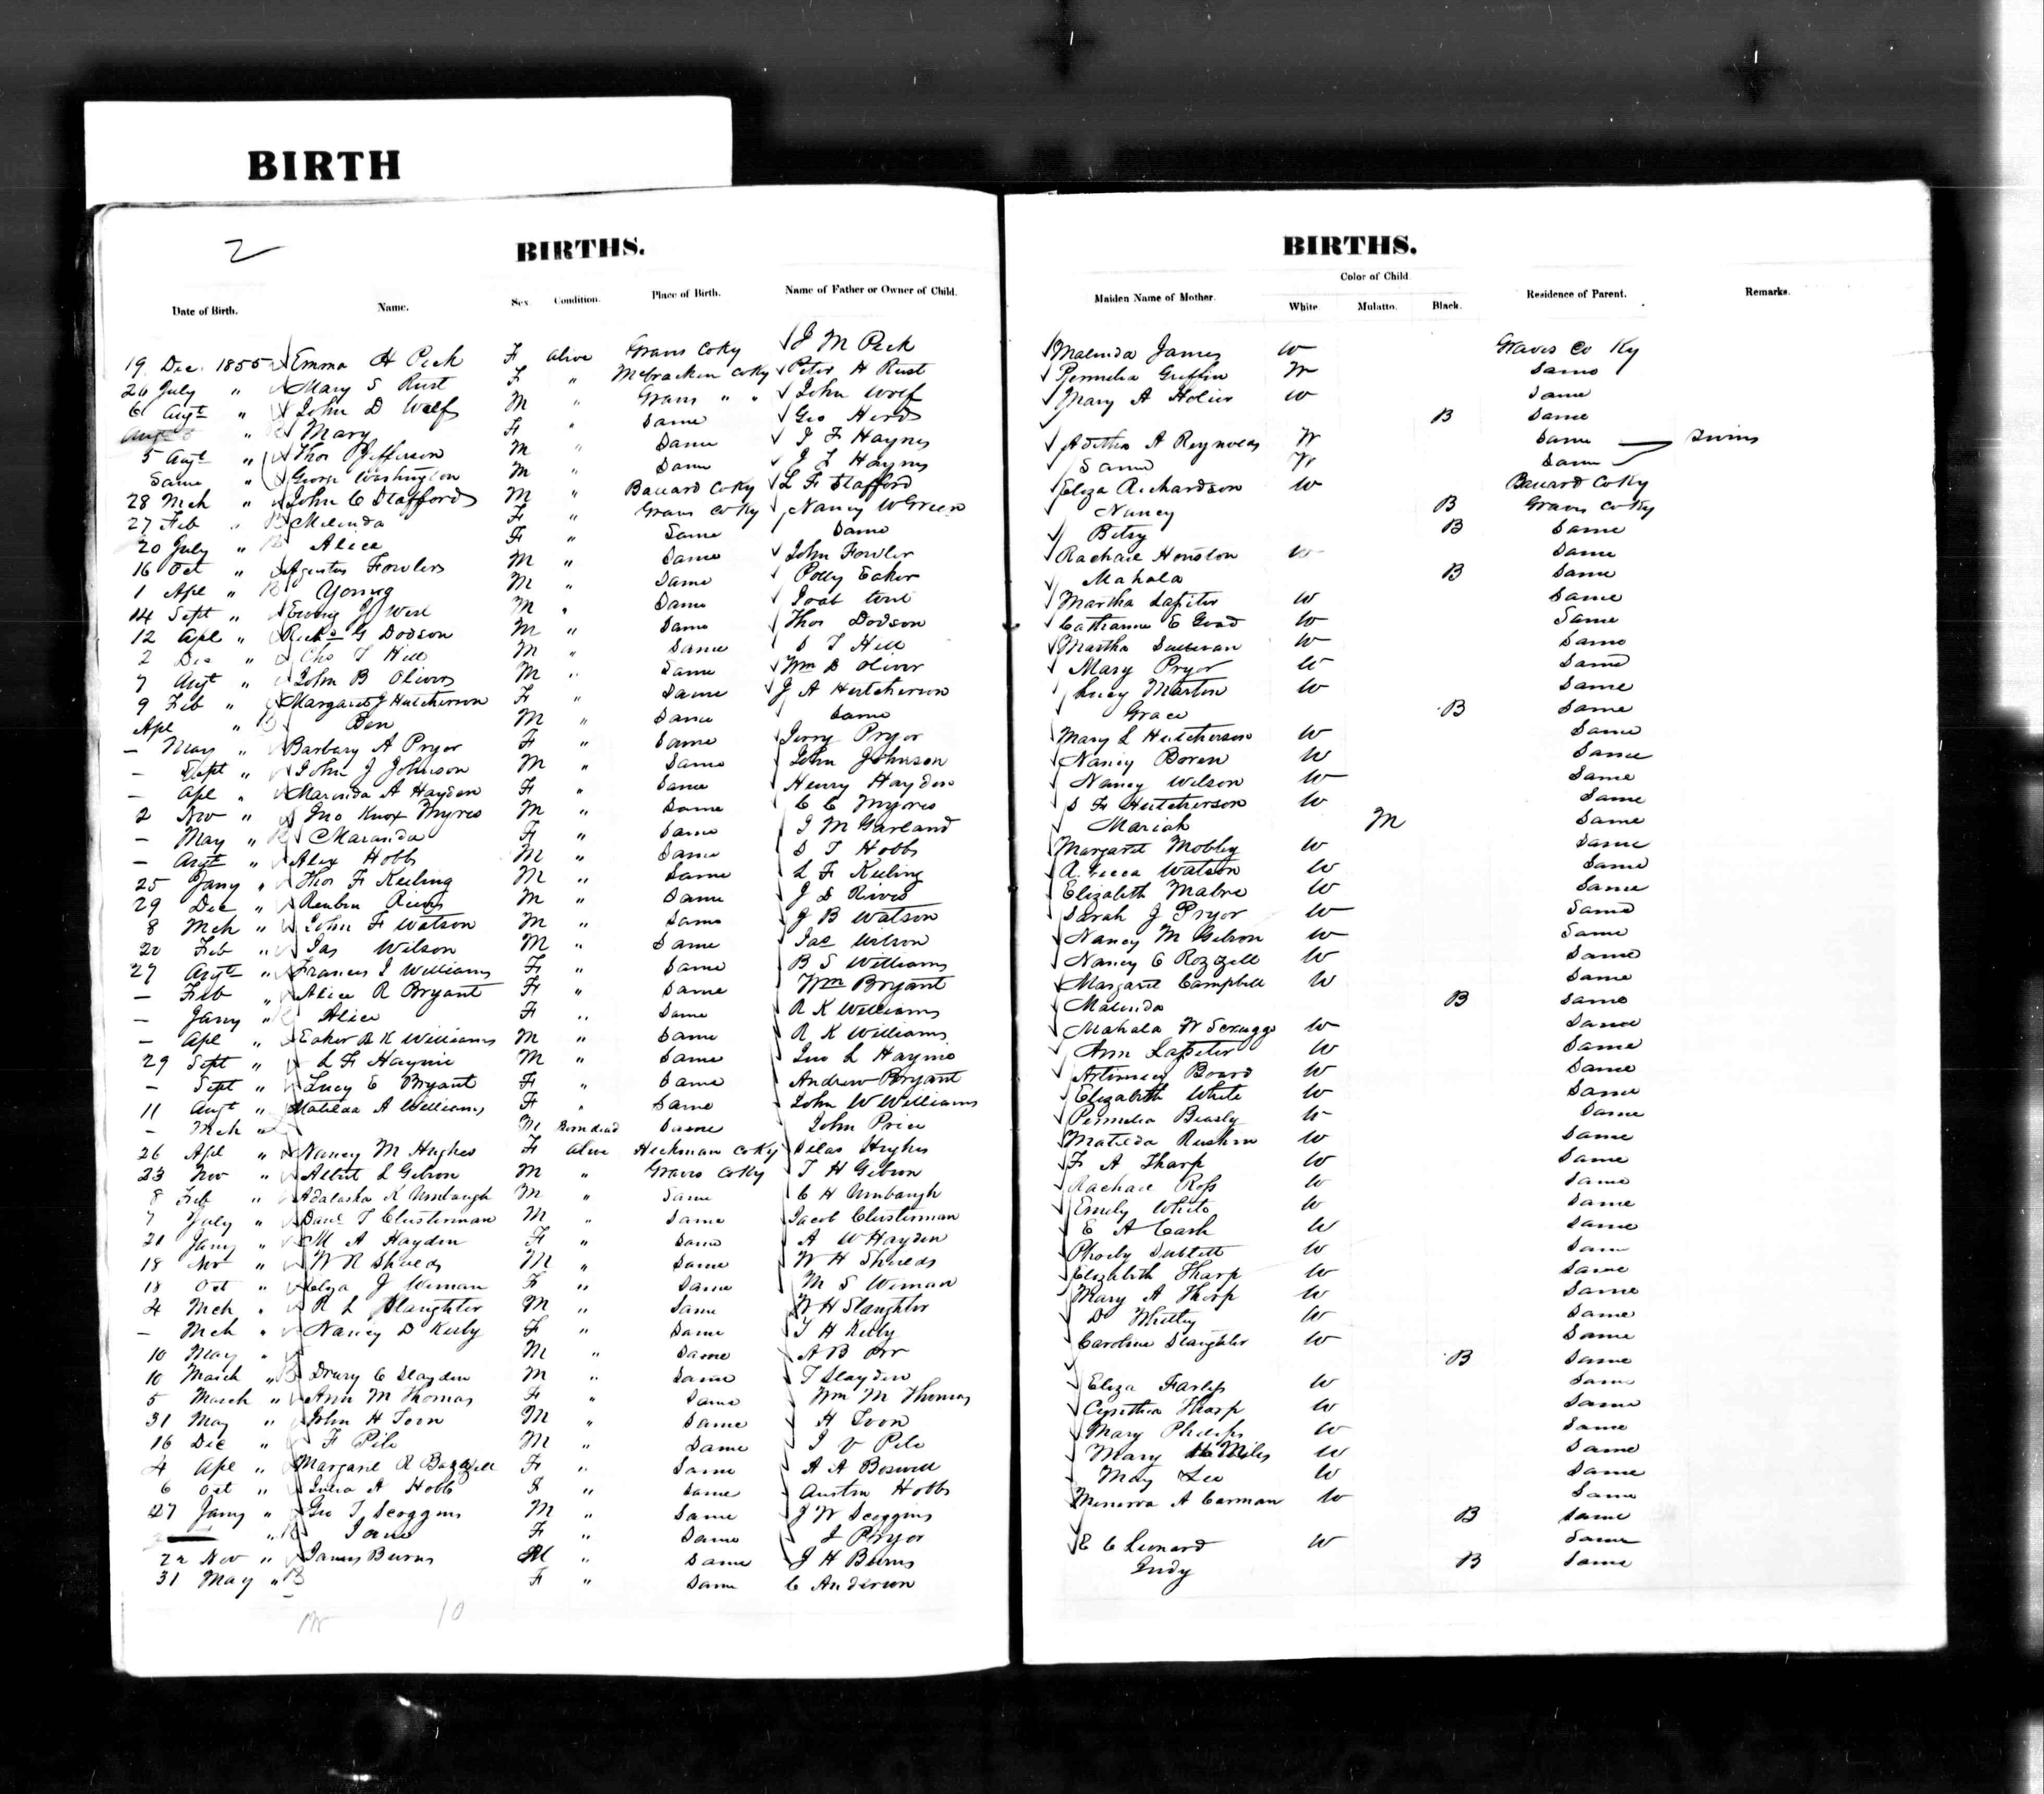 BIRTH
2
BIRTHS.
Date of Birth. Name. Sex. Condition. Place of Birth. Name of Father or Owner of Child.
19 Dec. 1855 Emma H Peck F alive Graves Co Ky J M Peck
26 July " Mary S Rust F " McCracken Co Ky Peter H Rust
6 Augt " John D Wolf M " Graves " " John Wolf
" B Mary F " Same Geo Herd
5 Augt " Thos Jefferson M " Same J F Haynes
Same " George Washington M " Same J F Haynes
28 Mch " John C Stafford M " Ballard Co Ky L F Stafford
27 Feb " B Melinda F " Graves Co Ky Nancy W Green
20 July " B Alice F " Same Same
16 Oct " Fowler M " Same John Fowler
1 Apl " B Young M " Same Polly Eaker
14 Sept " Ewing J West M " Same
12 Apl " Richd G Dodson M " Same Thos Dodson
2 Dec " Chs T Hill M " Same S T Hill
7 Augt " John B Oliver M " Same Wm D Oliver
9 Feb " Margaret J Hutcherson F " Same J A Hutcherson
Apl " B Ben M " Same Same
— May " Barbary A Pryor F " Same Jerry Pryor
— Sept " John J Johnson M " Same John Johnson
— Apl " Marinda A Hayden F " Same Henry Hayden
2 Nov " Jno Knox Myres M " Same C C Myres
— May " B Maranda F " Same J M Garland
— Augt " Alex Hobbs M " Same S T Hobbs
25 Jany " Thos F Keeling M " Same L F Keeling
29 Dec " Reuben Rives M " Same J S Rives
8 Mch " John F Watson M " Same J B Watson
20 Feb " Jas Wilson M " Same Jas Wilson
27 Augt " Frances J Williams F " Same B S Williams
— Feb " Alice R Bryant F " Same Wm Bryant
— Jany " B Alice F " Same R K Williams
— Apl " Eaker R K Williams M " Same R K Williams
29 Sept " L F Haynie M " Same Jno L Haynie
— Sept " Lucy E Bryant F " Same Andrew Bryant
11 Augt " Matilda A Williams F " Same John W Williams
— Mch " M Born dead Same John Price
26 Apl " Nancy M Hughes F alive Hickman Co Ky Silas Hughes
23 Nov " Albert L Gibson M " Graves Co Ky T H Gibson
8 Feb " K Umbaugh M " Same C H Umbaugh
7 July " Danl T Clusterman M " Same Jacob Clusterman
21 Jany " M A Hayden F " Same A W Hayden
18 Nov " W R Shields M " Same W H Shields
18 Oct " Eliza J Weman F " Same M S Weman
4 Mch " R L Slaughter M " Same W H Slaughter
— Mch " Nancy D Kerby F " Same T H Kerby
10 May " M " Same A B Orr
10 March " B Drury C Slayden M " Same T Slayden
5 March " Ann M Thomas F " Same Wm M Thomas
31 May " John H Toon M " Same H Toon
16 Dec " F Pile M " Same J V Pile
4 Apl " Margaret R F " Same A A Boswell
6 Oct " Julia A Hobbs F " Same Austin Hobbs
27 Jany " Geo T Scoggins M " Same J W Scoggins
" B Jane F " Same J Pryor
22 Nov " James Burns M " Same J H Burns
31 May " B F " Same C Anderson
10
BIRTHS.
Color of Child.
Maiden Name of Mother. White. Mulatto. Black. Residence of Parent. Remarks.
Malinda James W Graves Co Ky
Permelia Griffin W Same
Mary A W Same
B Same
A Reynolds W Same twins
Same W Same
Eliza Richardson W Ballard Co Ky
Nancy B Graves Co Ky
Betsy B Same
Rachael Houston W Same
Mahala B Same
Martha Lasiter W Same
Catharine E W Same
Martha Sullivan W Same
Mary Pryor W Same
Lucy Martin W Same
Grace B Same
Mary L Hutcherson W Same
Nancy Boren W Same
Nancy Wilson W Same
S F Hutcherson W Same
Mariah M Same
Margaret Mobley W Same
Watson W Same
Elizabeth W Same
Sarah J Pryor W Same
Nancy M Gibson W Same
Nancy C Rozzell W Same
Margaret Campbell W Same
Malinda B Same
Mahala W Scruggs W Same
Ann Lasiter W Same
Board W Same
Elizabeth White W Same
Permelia Beasly W Same
Matilda W Same
F A Tharp W Same
Rachael Ross W Same
Emily White W Same
E A Cash W Same
Phoeby Sublett W Same
Elizabeth Tharp W Same
Mary A Tharp W Same
D Whitley W Same
Caroline Slaughter W Same
B Same
Eliza W Same
Cynthia Tharp W Same
Mary Phelps W Same
Mary Miles W Same
May Lee W Same
Minerva A Carman W Same
B Same
E C Leonard W Same
Judy B Same